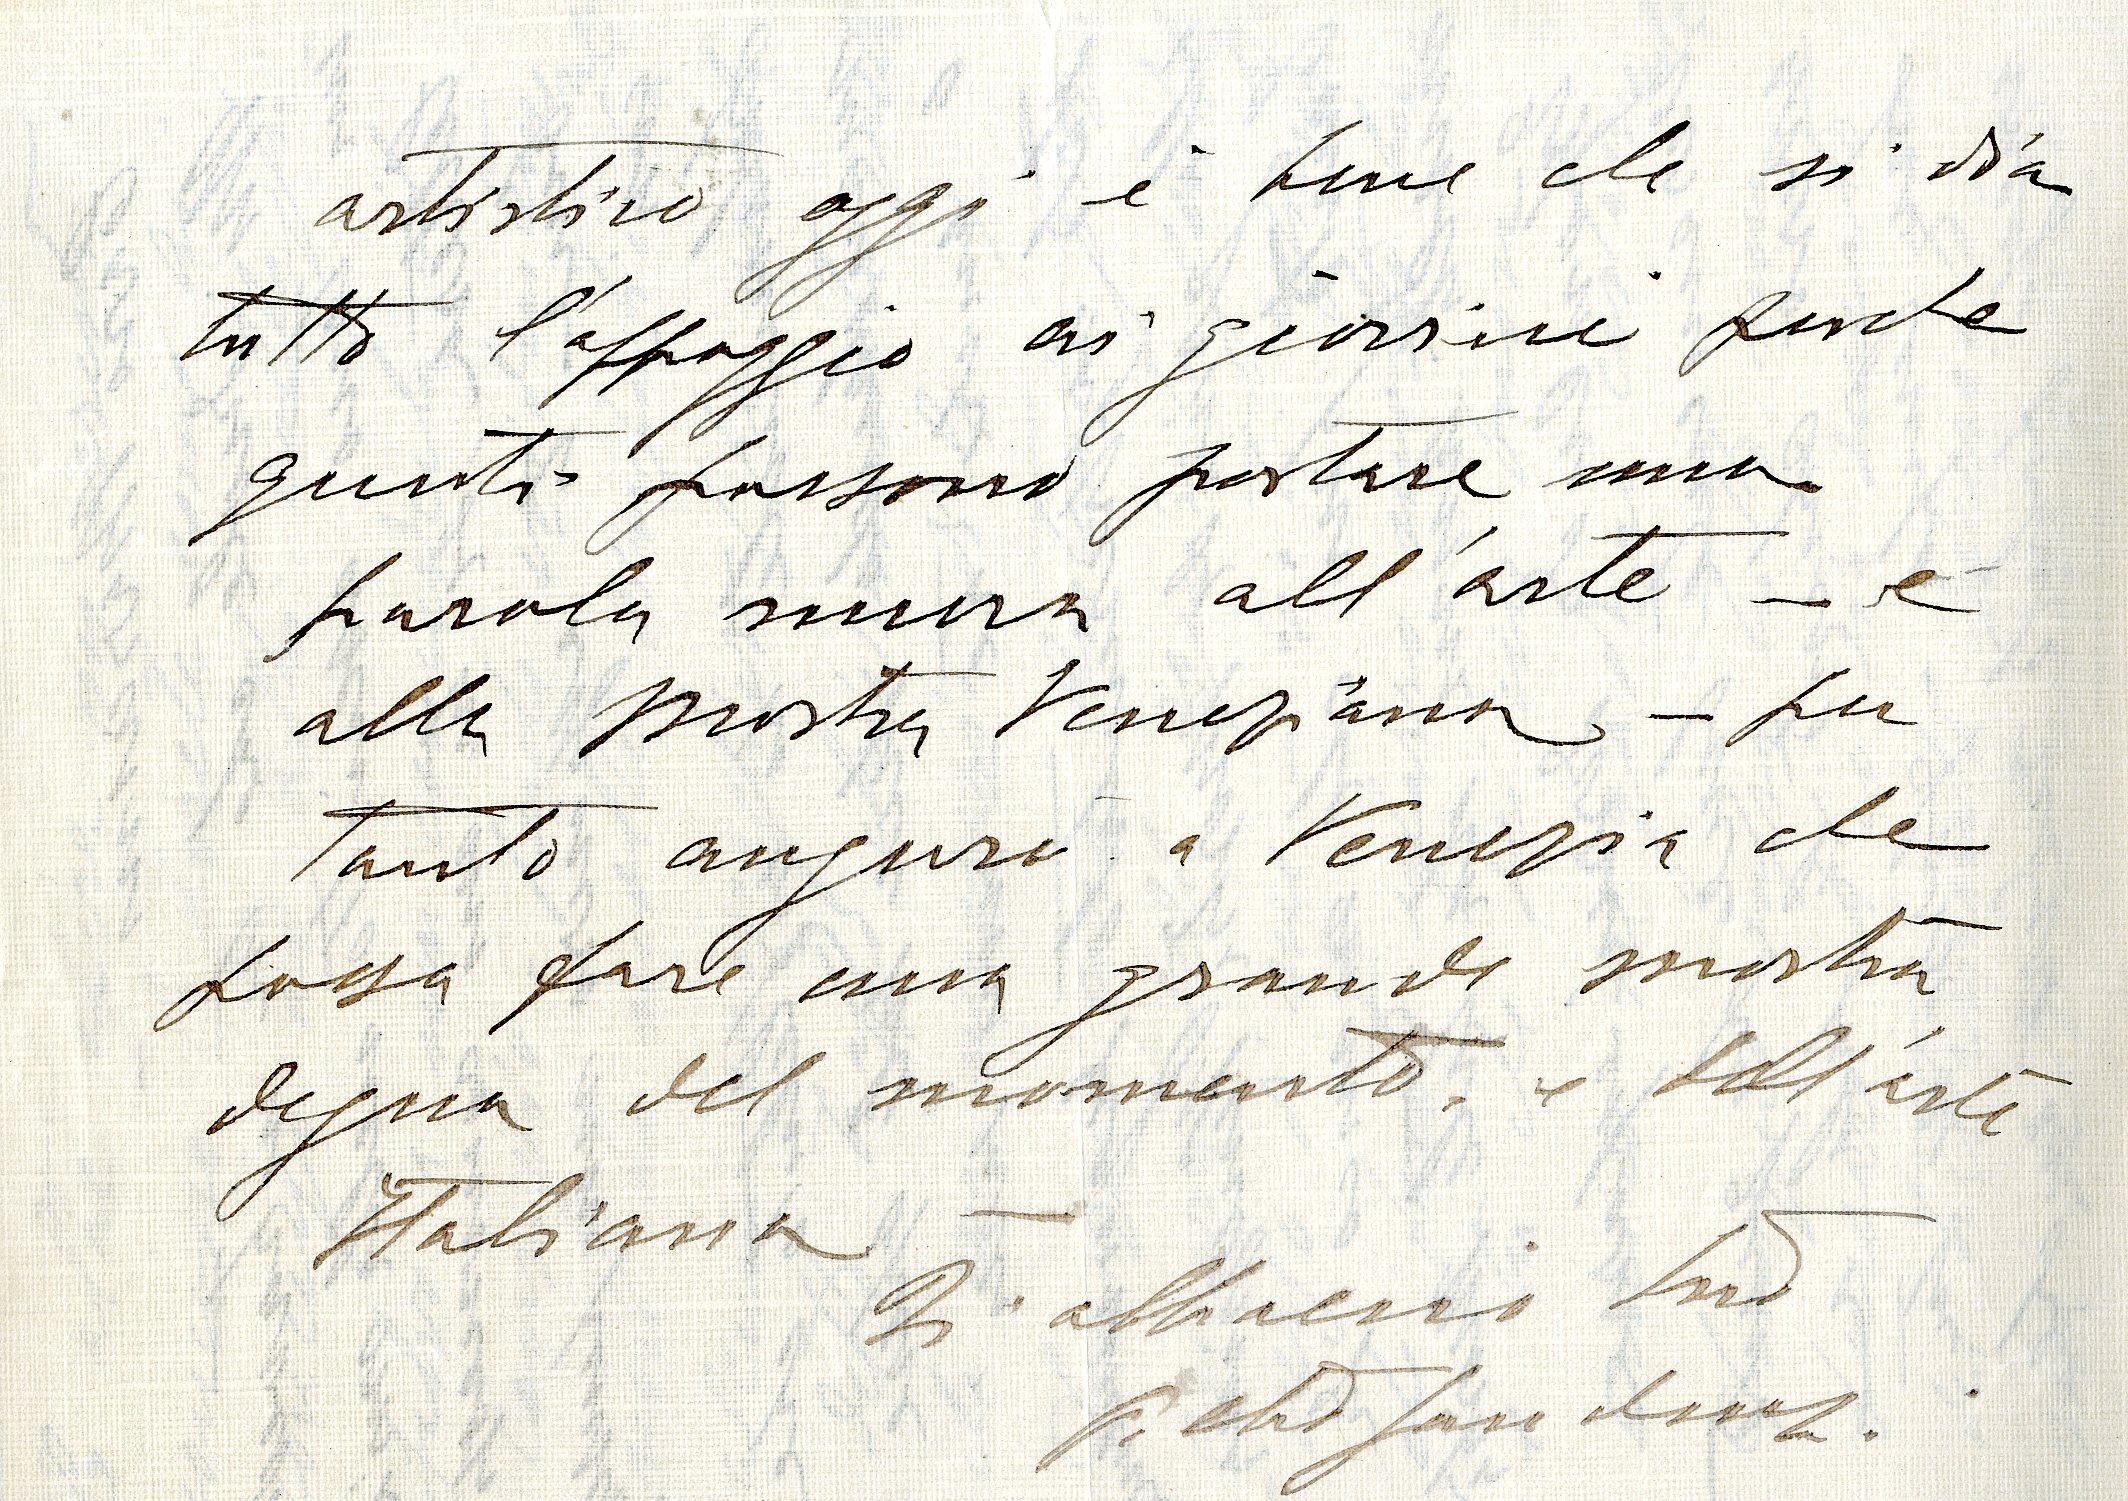 artistico oggi è bene che si dia
tutto l'appoggio ai giovini perche
questi possono portare una
parola nuova all'arte – e
alla mostra Veneziana – per
tanto auguro a Venezia che
possa fare una grande mostra
degna del momento, e dell'arte
Italiana –
Ti abbraccio tuo